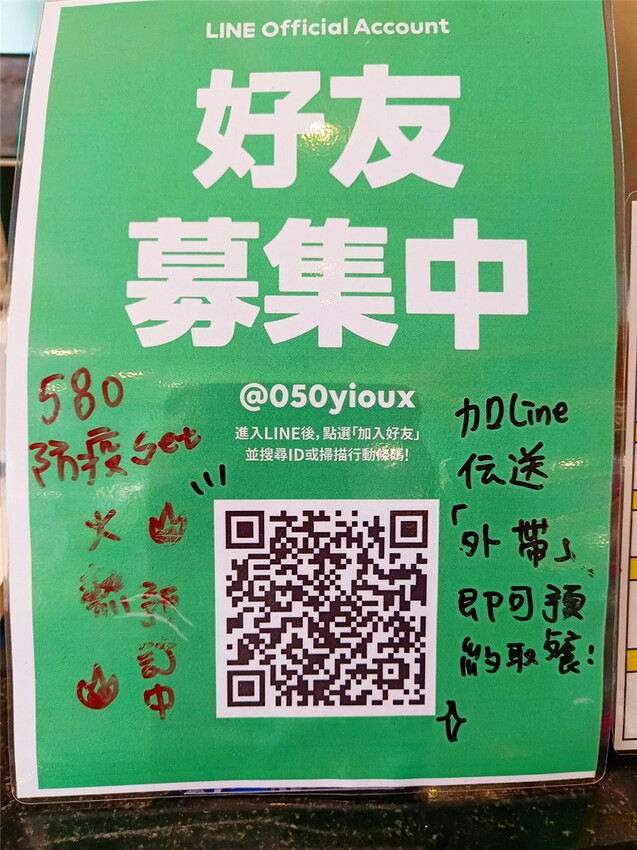 LINE Official Account
好友
募集中
@050yioux
進入LINE後，點選「加入好友」
並搜尋ID或掃描行動條碼！
580
防疫set
火
熱預
訂
中
加Line
伝送
「外帶」
即可預
約取餐！